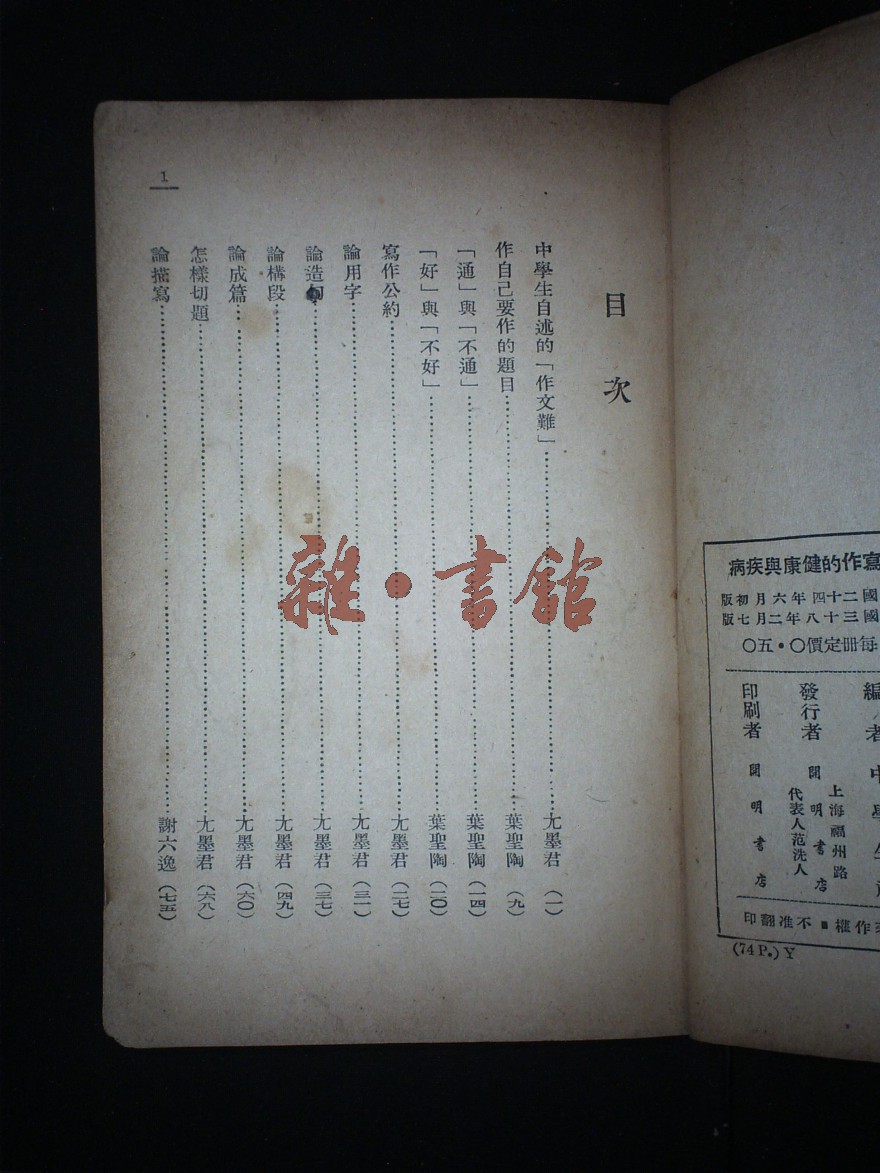 寫作的健康與疾病
國二十四年六月初版
國三十八年二月七版
每冊定價〇·五〇
編者 中學生
發行者 上海福州路 開明書店 代表人范洗人
印刷者 開明書店
作權■不准翻印
(74 P.) Y
目次
中學生自述的「作文難」……尤墨君（一）
作自己要作的題目……葉聖陶（九）
「通」與「不通」……葉聖陶（一四）
「好」與「不好」……葉聖陶（二〇）
寫作公約……尤墨君（二七）
論用字……尤墨君（三一）
論造句……尤墨君（三七）
論構段……尤墨君（四九）
論成篇……尤墨君（六〇）
怎樣切題……尤墨君（六八）
論描寫……謝六逸（七五）
1
雜·書館